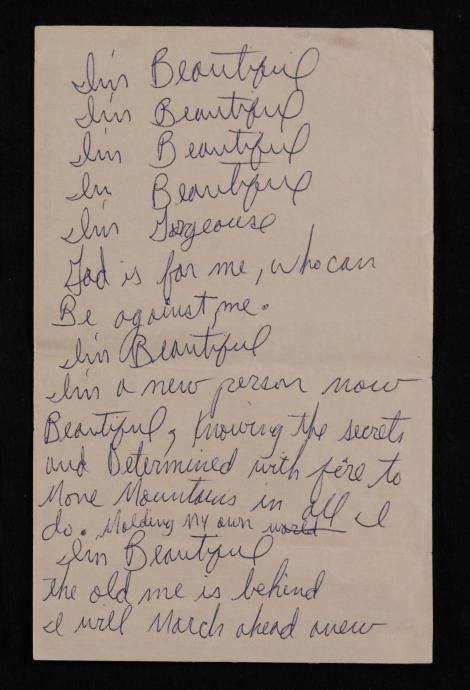 I'm Beautiful
I'm Beautiful
I'm Beautiful
I'm Beautiful
I'm Gorgeouse
God is for me, who can
Be against me.
I'm Beautiful
I'm a new person now
Beautiful, Knowing the secrets
and Determined with fire to
Move Mountains in all I
do. Molding My own world
I'm Beautiful
the old me is behind
I will March ahead anew